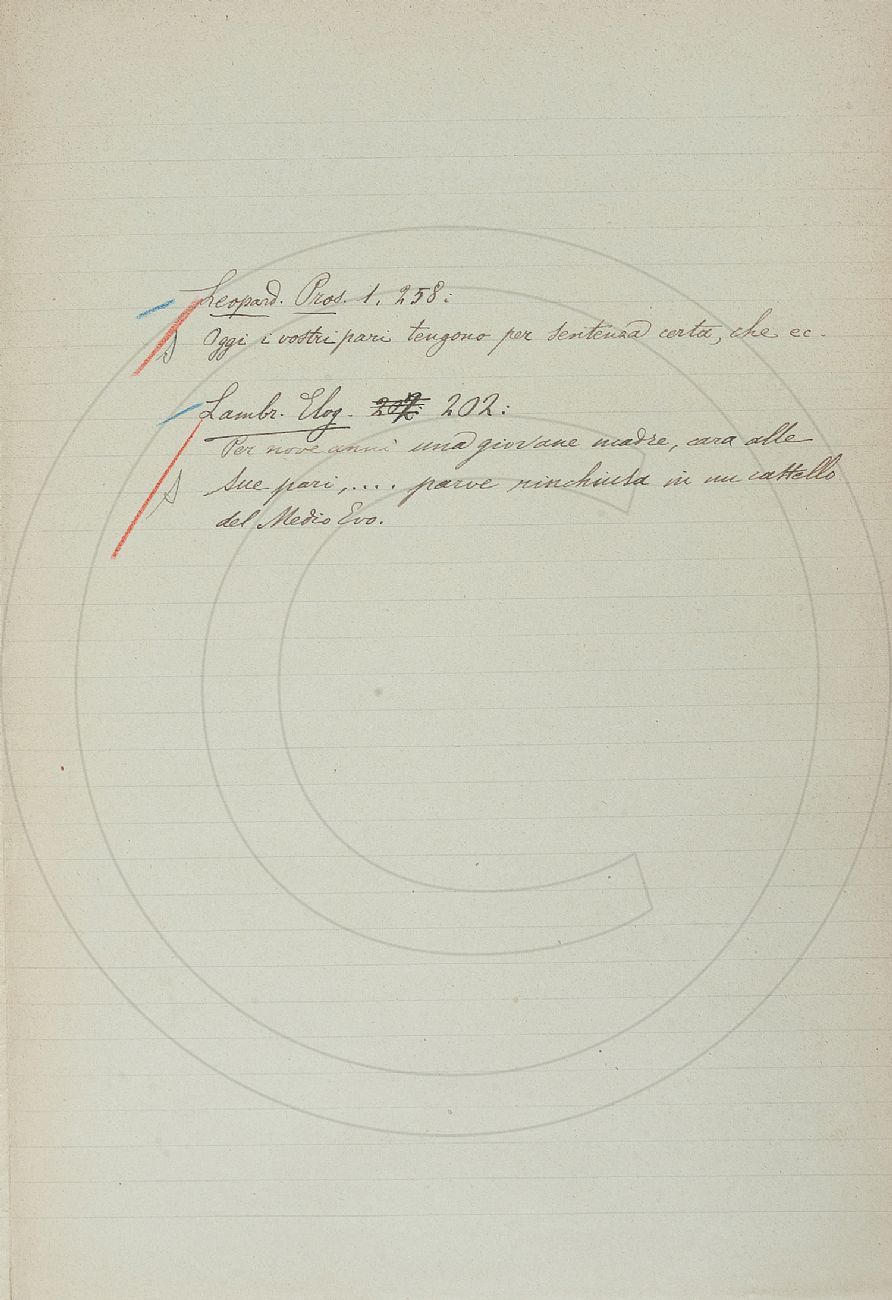 Leopard. Pros. 1. 258:
Oggi i vostri pari tengono per sentenza certa, che ec.
Lambr. Elog. 202:
Per nove anni una giovane madre, cara alle
sue pari,.... parve rinchiusa in un castello
del Medio Evo.